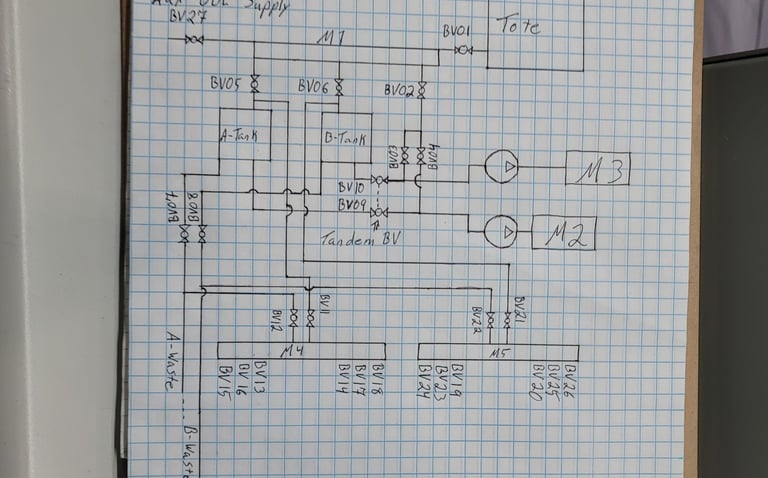 Supply
BV27
M1
BV01
Tote
BV05
BV06
BV02
A-Tank
B-Tank
BV03
BV04
BV10
BV09
M3
M2
BV07
BV08
Tandem BV
BV12
BV11
BV22
BV21
M4
M5
BV15
BV16
BV13
BV14
BV17
BV18
BV24
BV23
BV19
BV20
BV25
BV26
A-Waste
B-Waste